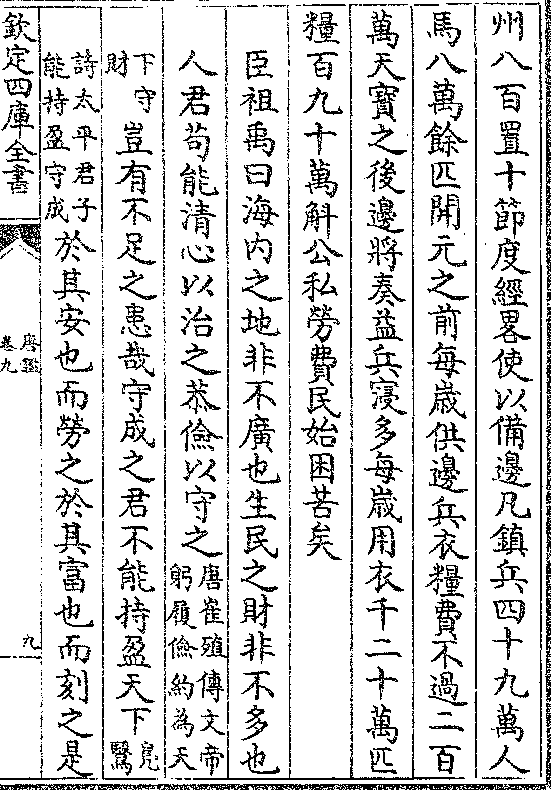 州八百置十節度經畧使以備邊凡鎮兵四十九萬人
馬八萬餘匹開元之前每歲供邊兵衣糧費不過二百
萬天寶之後邊將奏益兵寖多每歲用衣千二十萬匹
糧百九十萬斛公私勞費民始困苦矣
臣祖禹曰海内之地非不廣也生民之財非不多也
人君苟能清心以治之恭儉以守之唐崔殖傳文帝躬履儉約為天
下守財豈有不足之患哉守成之君不能持盈天下鳧鷖
詩太平君子能持盈守成於其安也而勞之於其富也而刻之是
欽定四庫全書
唐鑑
卷九
九